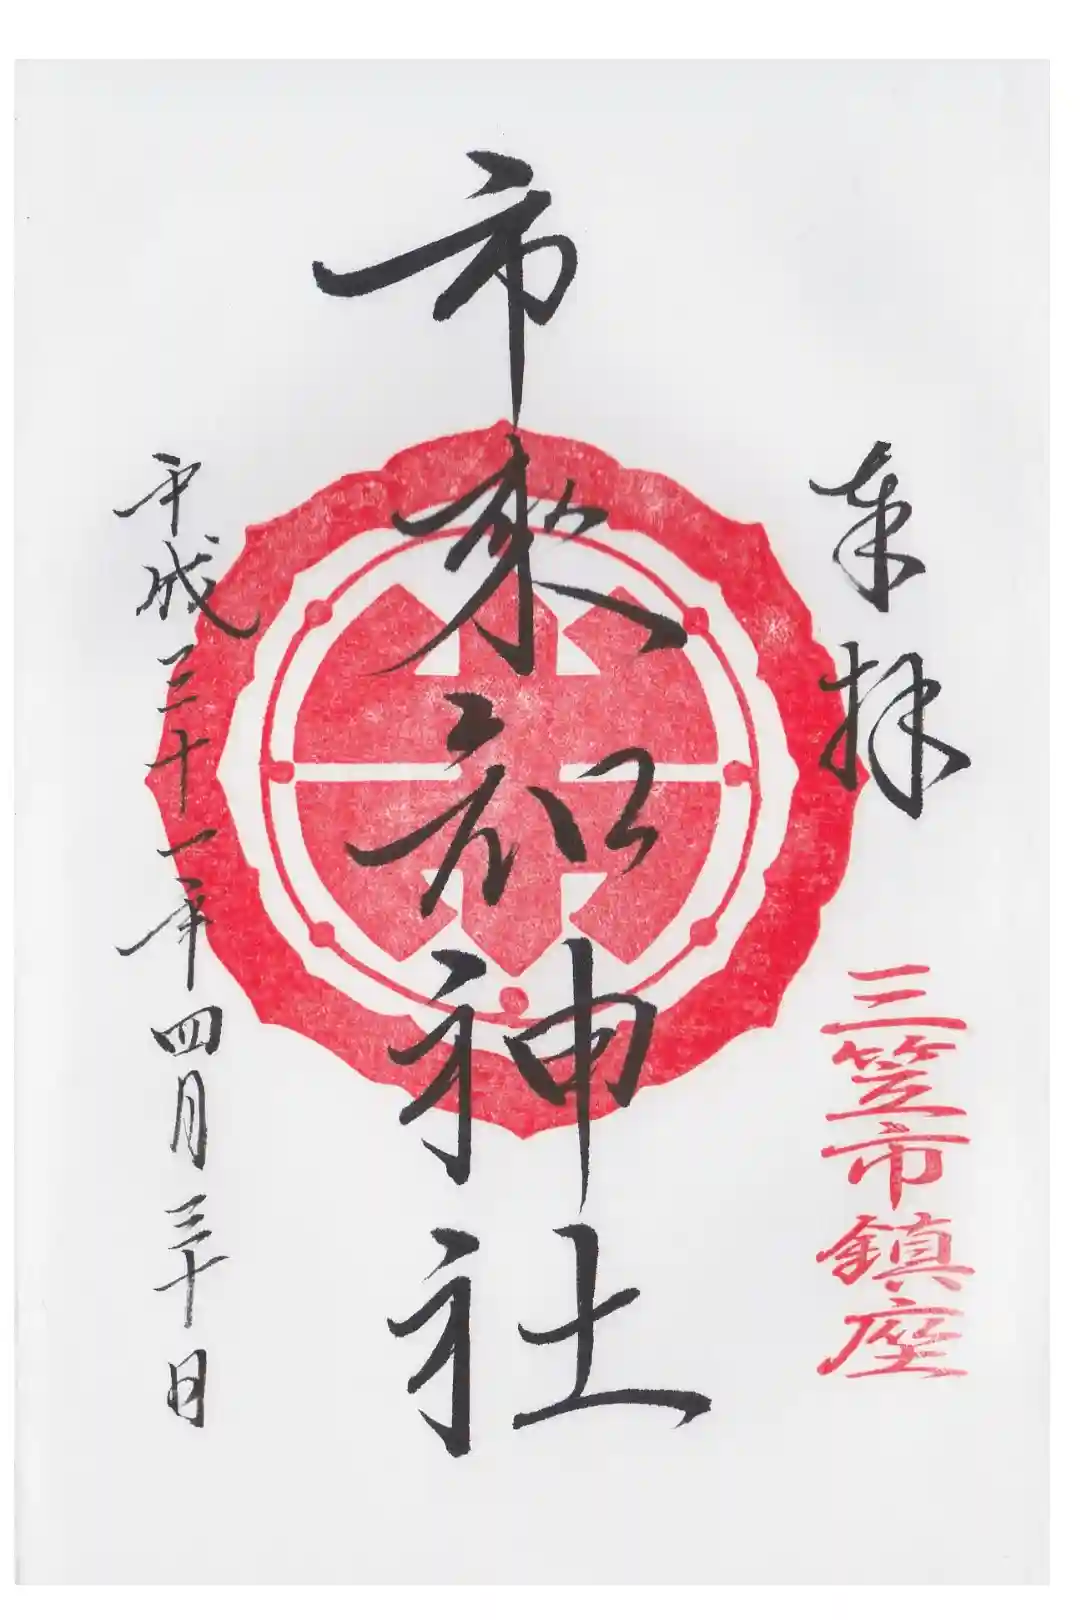 奉拝
三笠市鎮座
市来知神社
平成三十一年四月三十日